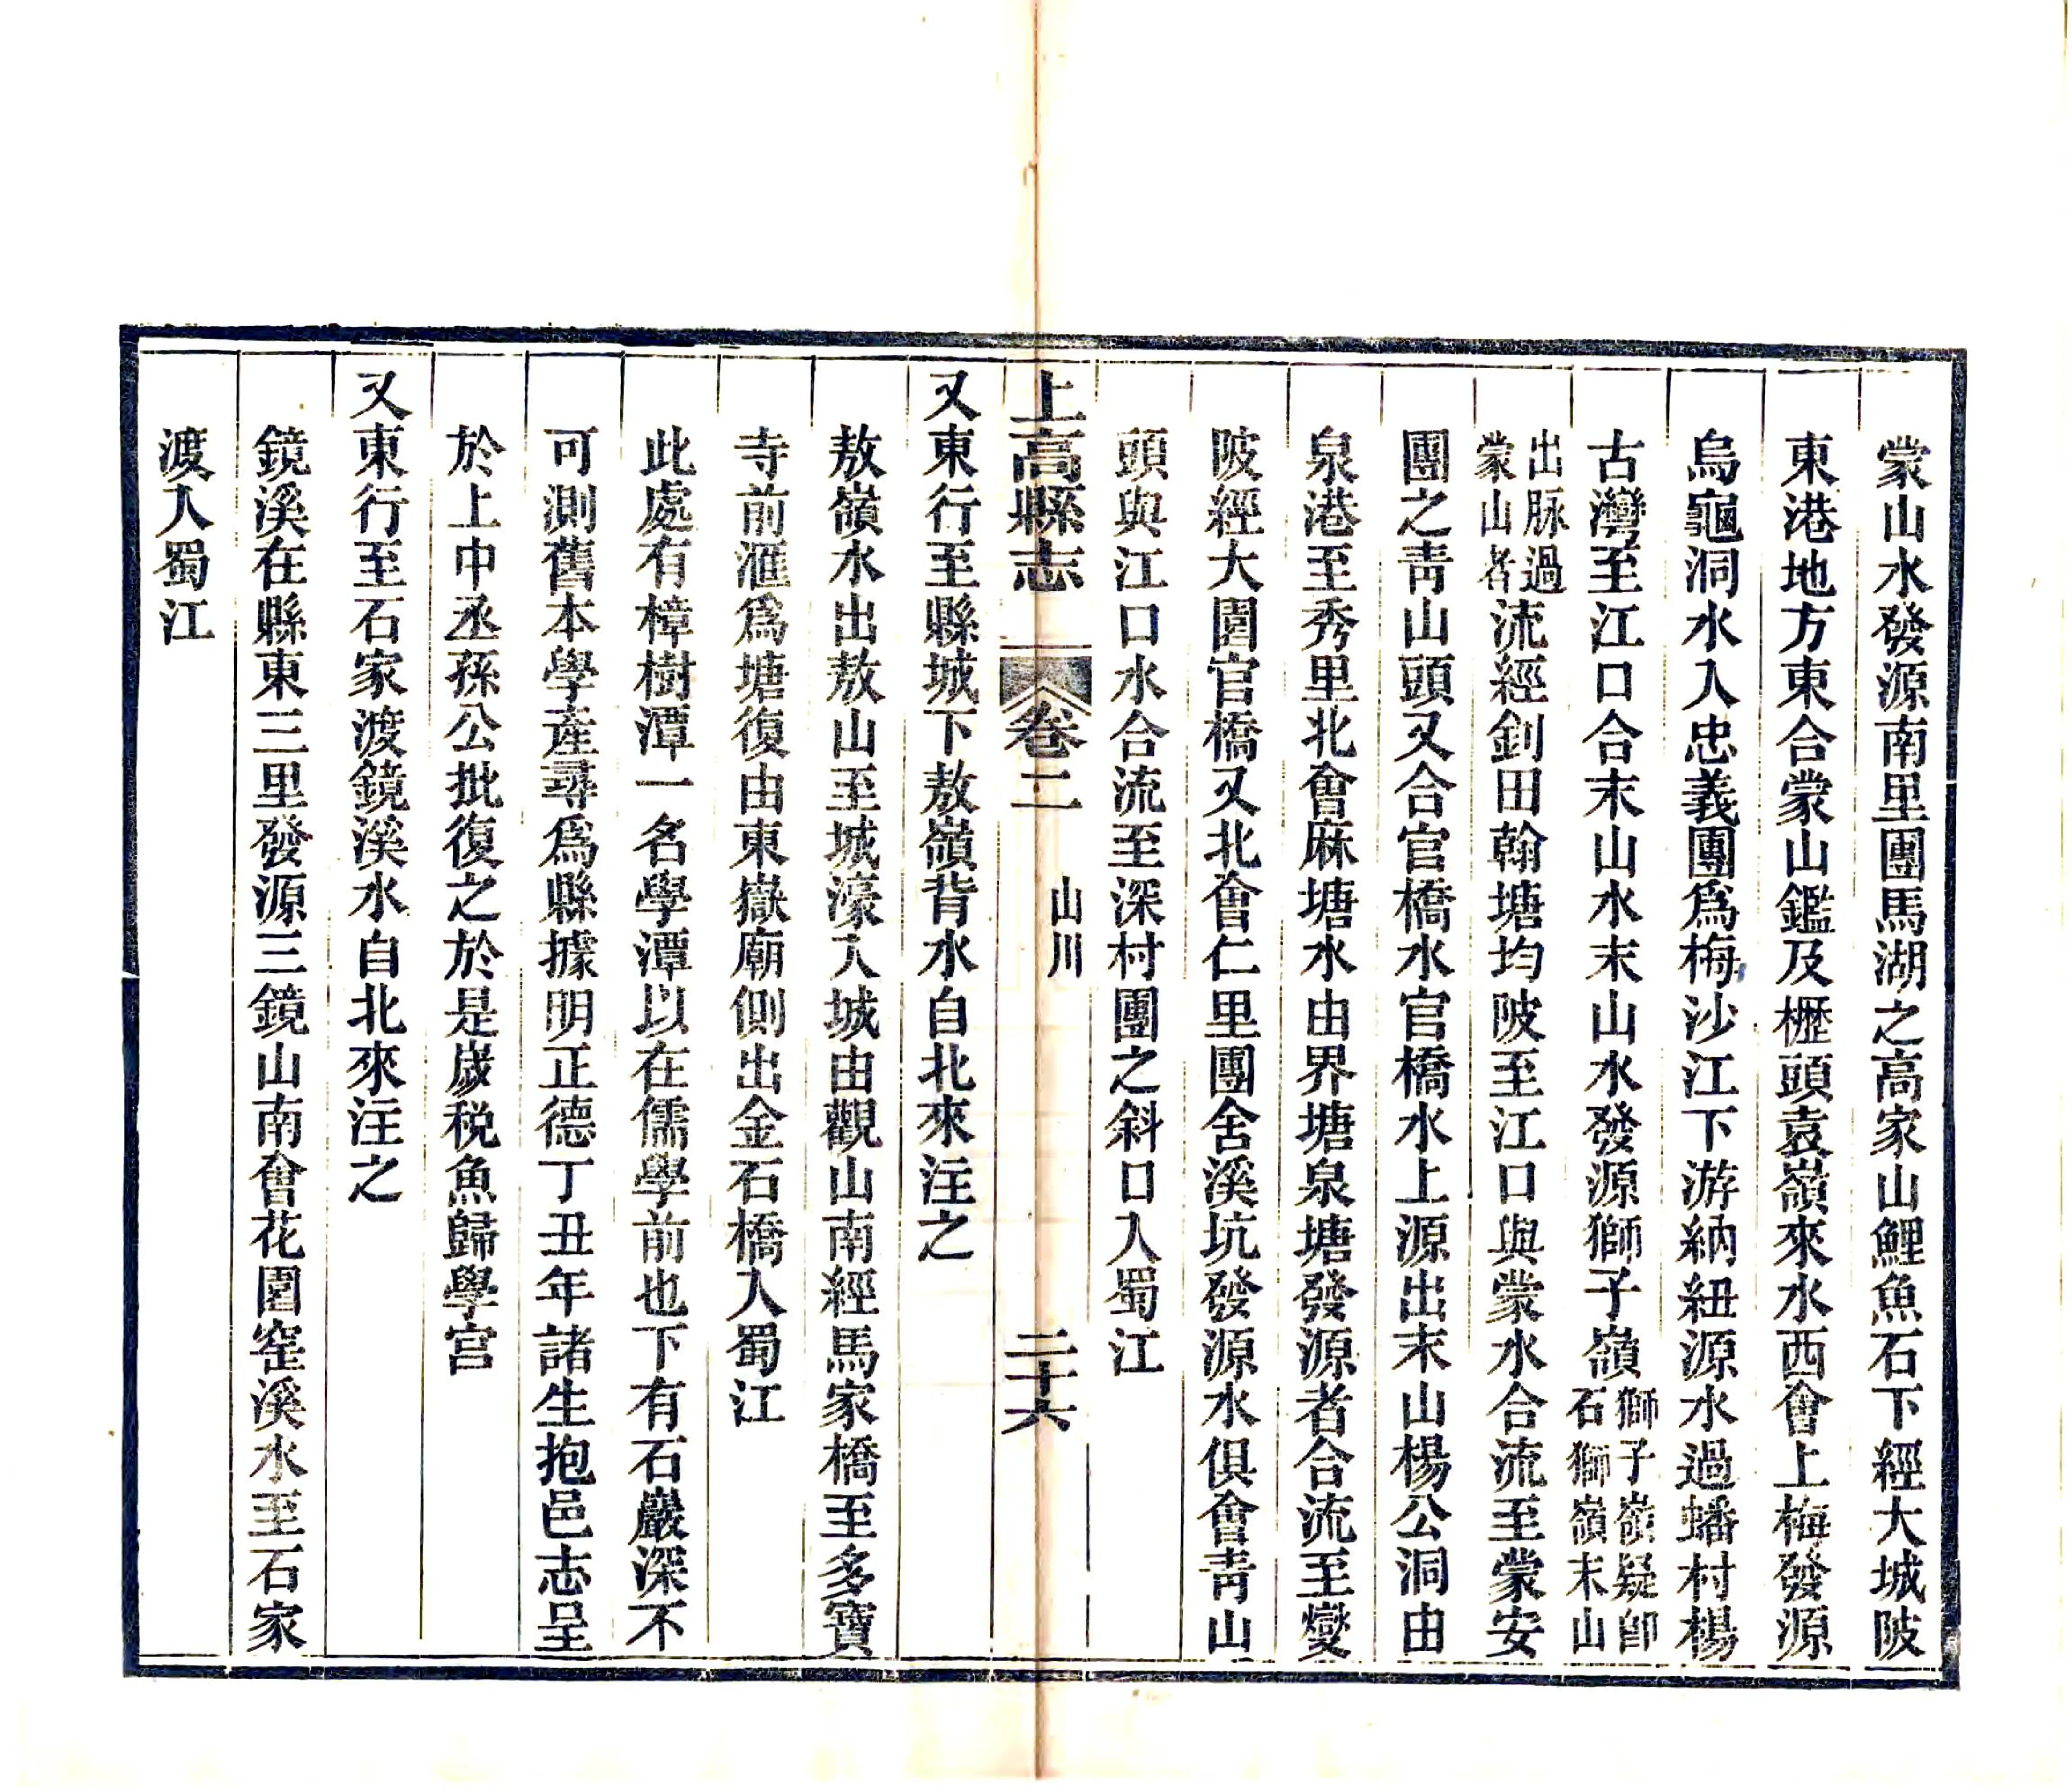 蒙山水發源南里團馬湖之高家山鯉魚石下經大城陂
東港地方東合蒙山鑑及櫪頭袁嶺來水西會上梅發源
烏龜洞水入忠義團爲梅沙江下游納紐源水過蟠村楊
古灣至江口合末山水末山水發源獅子嶺獅子嶺疑卽石獅嶺末山
出脉過蒙山者流經釗田翰塘均陂至江口與蒙水合流至蒙安
團之靑山頭又合官橋水官橋水上源出末山楊公洞由
泉港至秀里北會麻塘水由界塘泉塘發源者合流至燮
陂經大園官橋又北會仁里團舍溪坑發源水俱會靑山
頭與江口水合流至深村團之斜口入蜀江
上高縣志 卷二 山川 二十六
又東行至縣城下敖嶺背水自北來注之
敖嶺水出敖山至城濠入城由觀山南經馬家橋至多寶
寺前滙爲塘復由東嶽廟側出金石橋入蜀江
此處有樟樹潭一名學潭以在儒學前也下有石巖深不
可測舊本學產尋爲縣據明正德丁丑年諸生抱邑志呈
於上中丞孫公批復之於是歲税魚歸學宮
又東行至石家渡鏡溪水自北來注之
鏡溪在縣東三里發源三鏡山南會花園窑溪水至石家
渡入蜀江